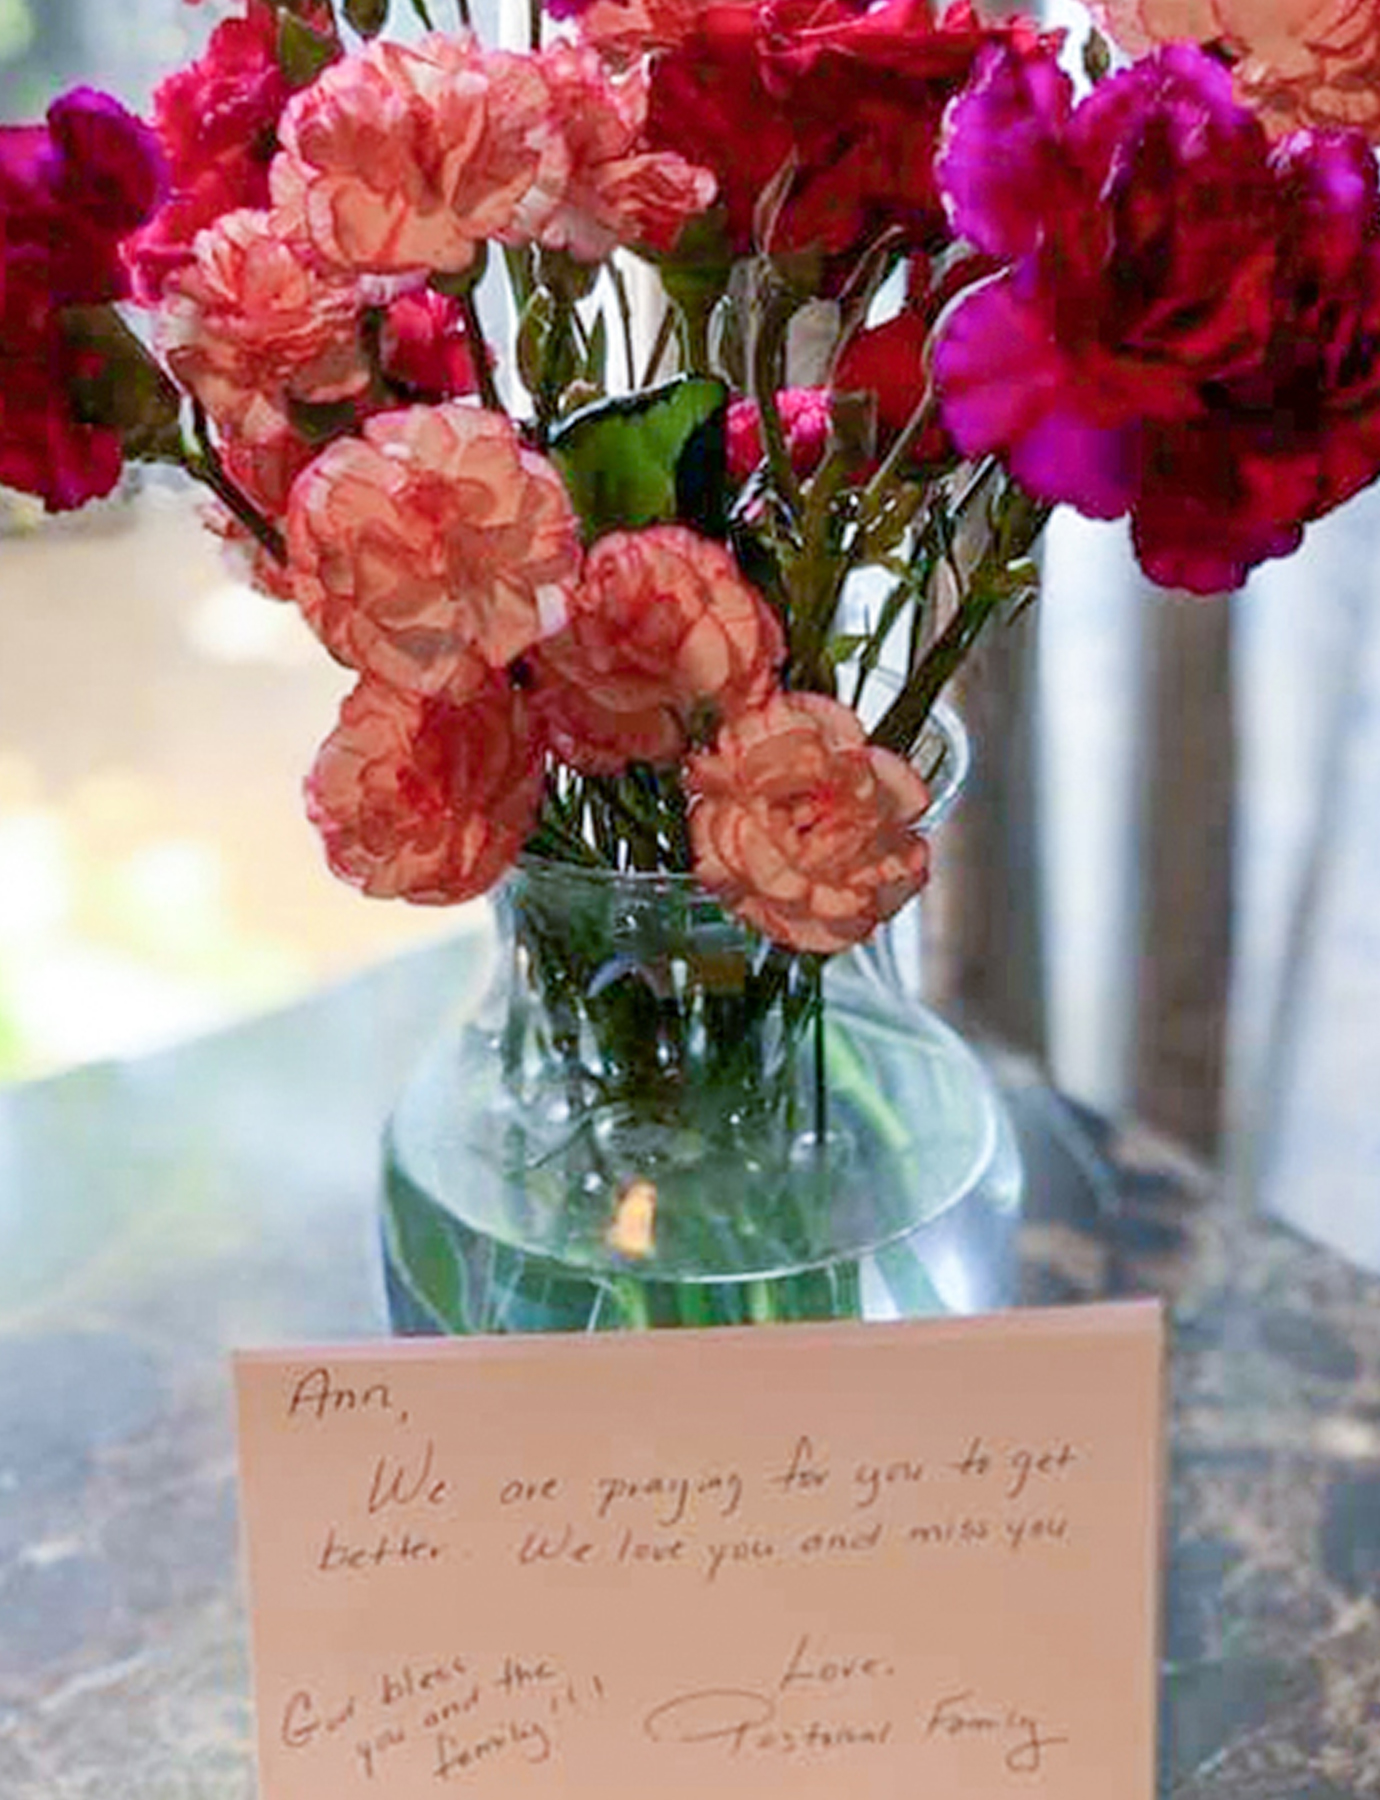 Ann,
We are praying for you to get
better. We love you and miss you
God bless
you and the
family!!!
Love,
Family